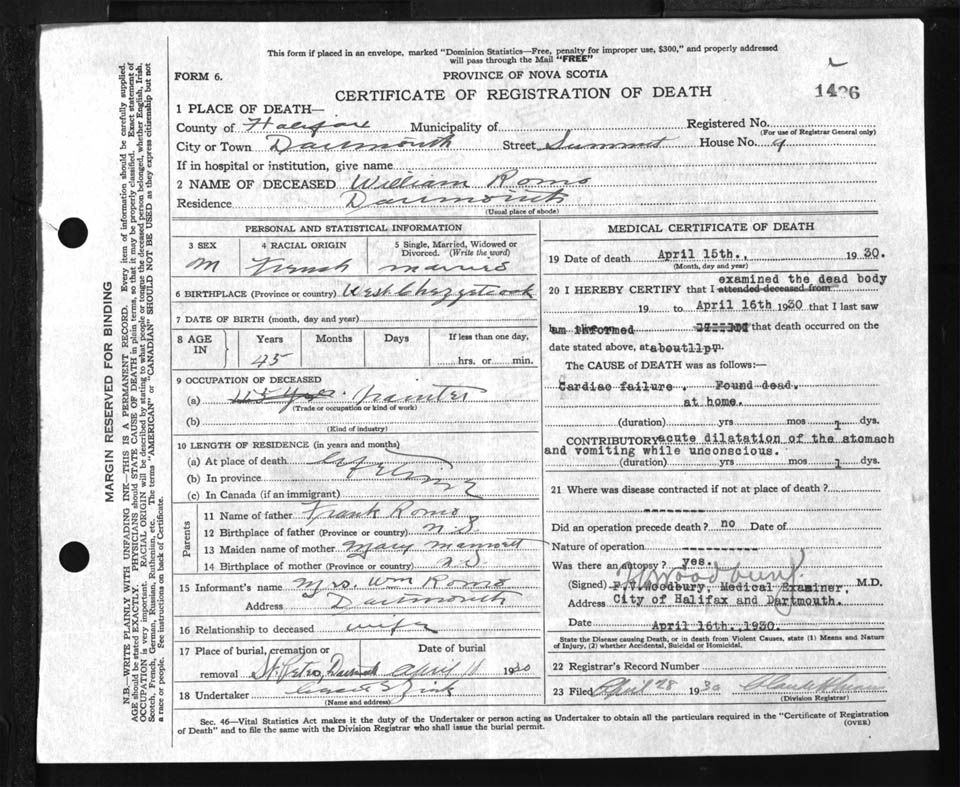 This form if placed in an envelope, marked "Dominion Statistics—Free, penalty for improper use, $300," and properly addressed
will pass through the Mail "FREE"
FORM 6.
PROVINCE OF NOVA SCOTIA
CERTIFICATE OF REGISTRATION OF DEATH
1426
1 PLACE OF DEATH—
County of Halifax Municipality of Registered No.
(For use of Registrar General only)
City or Town Dartmouth Street Summit House No. 9
If in hospital or institution, give name
2 NAME OF DECEASED William Romo
Residence Dartmouth
(Usual place of abode)
PERSONAL AND STATISTICAL INFORMATION
3 SEX 4 RACIAL ORIGIN 5 Single, Married, Widowed or Divorced. (Write the word)
M French married
6 BIRTHPLACE (Province or country) West Chezzetcook
7 DATE OF BIRTH (month, day and year)
8 AGE IN Years Months Days If less than one day,
45 hrs. or min.
9 OCCUPATION OF DECEASED
(a) painter
(Trade or occupation or kind of work)
(b)
(Kind of industry)
10 LENGTH OF RESIDENCE (in years and months)
(a) At place of death
(b) In province
(c) In Canada (if an immigrant)
Parents
11 Name of father Frank Romo
12 Birthplace of father (Province or country) N.S
13 Maiden name of mother Mary
14 Birthplace of mother (Province or country) N.S
15 Informant's name Mrs. Wm Romo
Address Dartmouth
16 Relationship to deceased wife
17 Place of burial, cremation or removal Date of burial
St. Peters, April 1930
18 Undertaker Zink
(Name and address)
MEDICAL CERTIFICATE OF DEATH
19 Date of death April 15th., 1930.
(Month, day and year)
examined the dead body
20 I HEREBY CERTIFY that I attended deceased from
19 to April 16th 1930 that I last saw
am informed that death occurred on the
date stated above, at about 11 p. m.
The CAUSE of DEATH was as follows:—
Cardiac failure . Found dead.
at home.
(duration) yrs mos 1 dys.
CONTRIBUTORY acute dilatation of the stomach
and vomiting while unconscious.
(duration) yrs mos 1 dys.
21 Where was disease contracted if not at place of death?
Did an operation precede death? no Date of
Nature of operation
Was there an autopsy? yes.
(Signed) F.V.Woodbury, Medical Examiner, M.D.
Address City of Halifax and Dartmouth.
Date April 16th.,1930.
State the Disease causing Death, or in death from Violent Causes, state (1) Means and Nature
of Injury, (2) whether Accidental, Suicidal or Homicidal.
22 Registrar's Record Number
23 Filed April 28 1930
(Division Registrar)
Sec. 46—Vital Statistics Act makes it the duty of the Undertaker or person acting as Undertaker to obtain all the particulars required in the "Certificate of Registration
of Death" and to file the same with the Division Registrar who shall issue the burial permit.
(OVER)
MARGIN RESERVED FOR BINDING
N.B.—WRITE PLAINLY WITH UNFADING INK—THIS IS A PERMANENT RECORD. Every item of information should be carefully supplied.
AGE should be stated EXACTLY. PHYSICIANS should STATE CAUSE OF DEATH in plain terms, so that it may be properly classified. Exact statement of
OCCUPATION is very important. RACIAL ORIGIN will be described by stating to what people or tongue the deceased person belonged, whether English, Irish,
Scotch, French, German, Russian, Ruthenian, etc. The terms "AMERICAN" or "CANADIAN" SHOULD NOT BE USED as they express citizenship but not
a race or people. See instructions on back of Certificate.